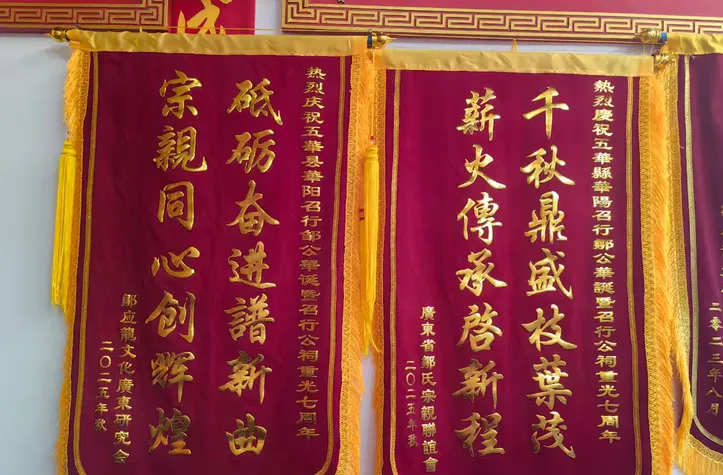 热烈庆祝五華县華阳召行邹公華诞暨召行公祠重光七周年
砥砺奋进譜新曲
宗親同心创辉煌
鄒应龍文化廣東研究会
二〇二五年秋
熱烈慶祝五華縣華陽召行鄒公華誕暨召行公祠重光七周年
千秋鼎盛枝葉茂
薪火傳承啓新程
廣東省鄒氏宗親聯誼會
二〇二五年秋
二零二三年八月